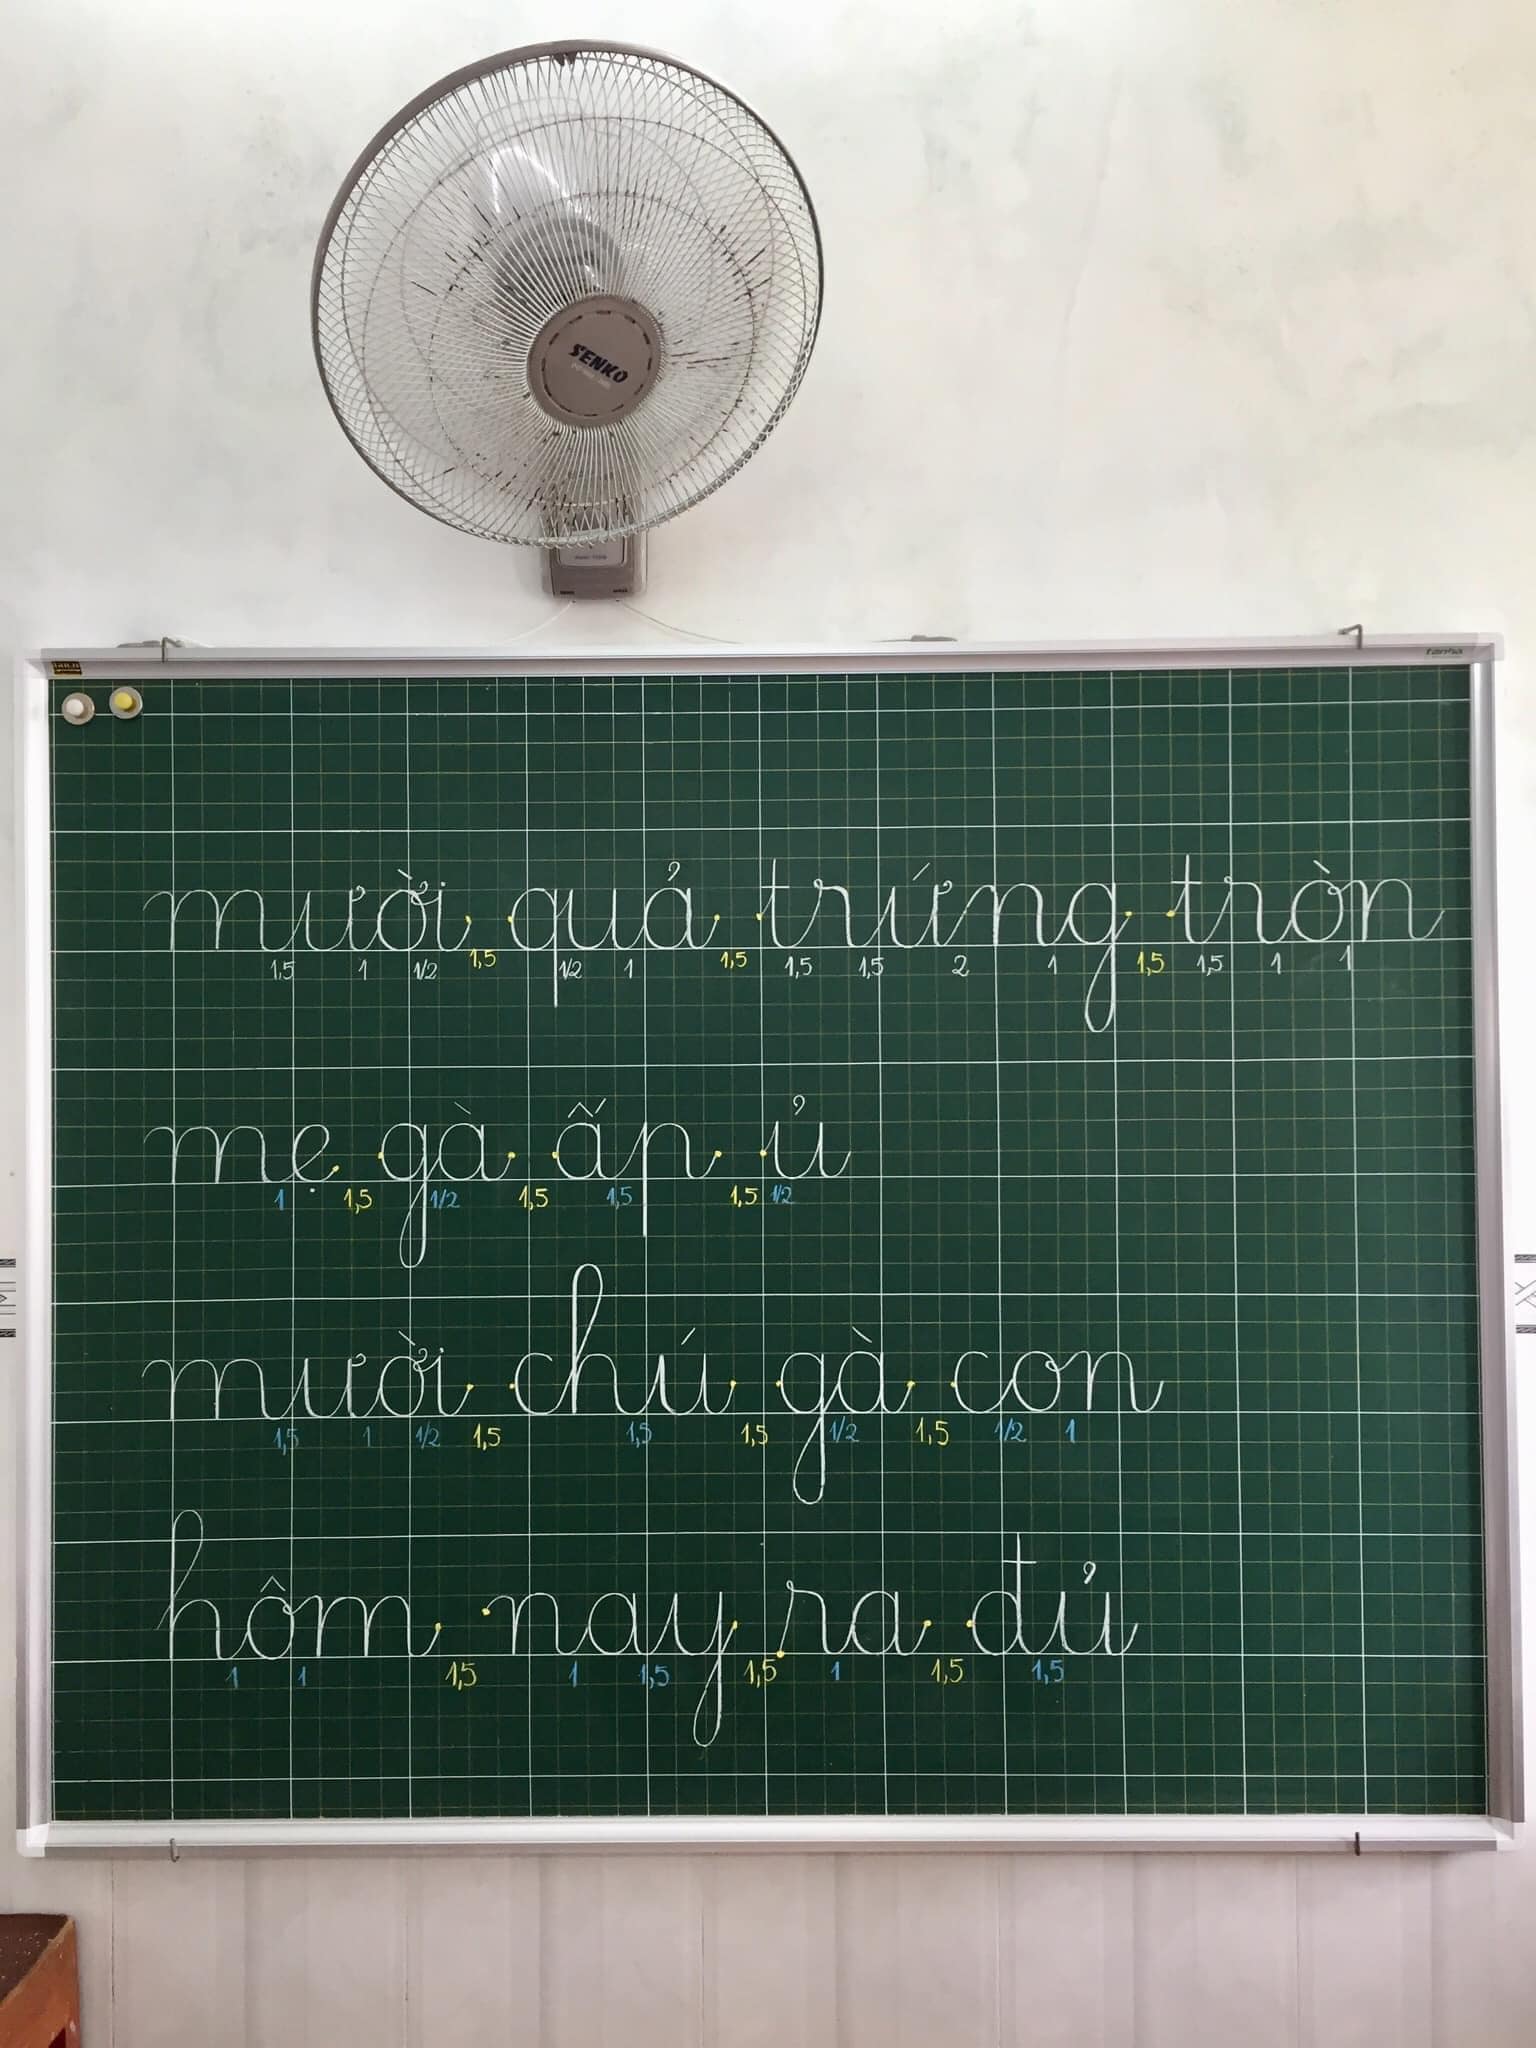 SENKO
mười quả trứng tròn
1,5 1 1/2 1,5 1/2 1 1,5 1,5 1,5 2 1 1,5 1,5 1 1
mẹ gà ấp ủ
1 1,5 1/2 1,5 1,5 1,5 1/2
mười chú gà con
1,5 1 1/2 1,5 1,5 1,5 1/2 1,5 1/2 1
hôm nay ra đủ
1 1 1,5 1 1,5 1,5 1 1,5 1,5